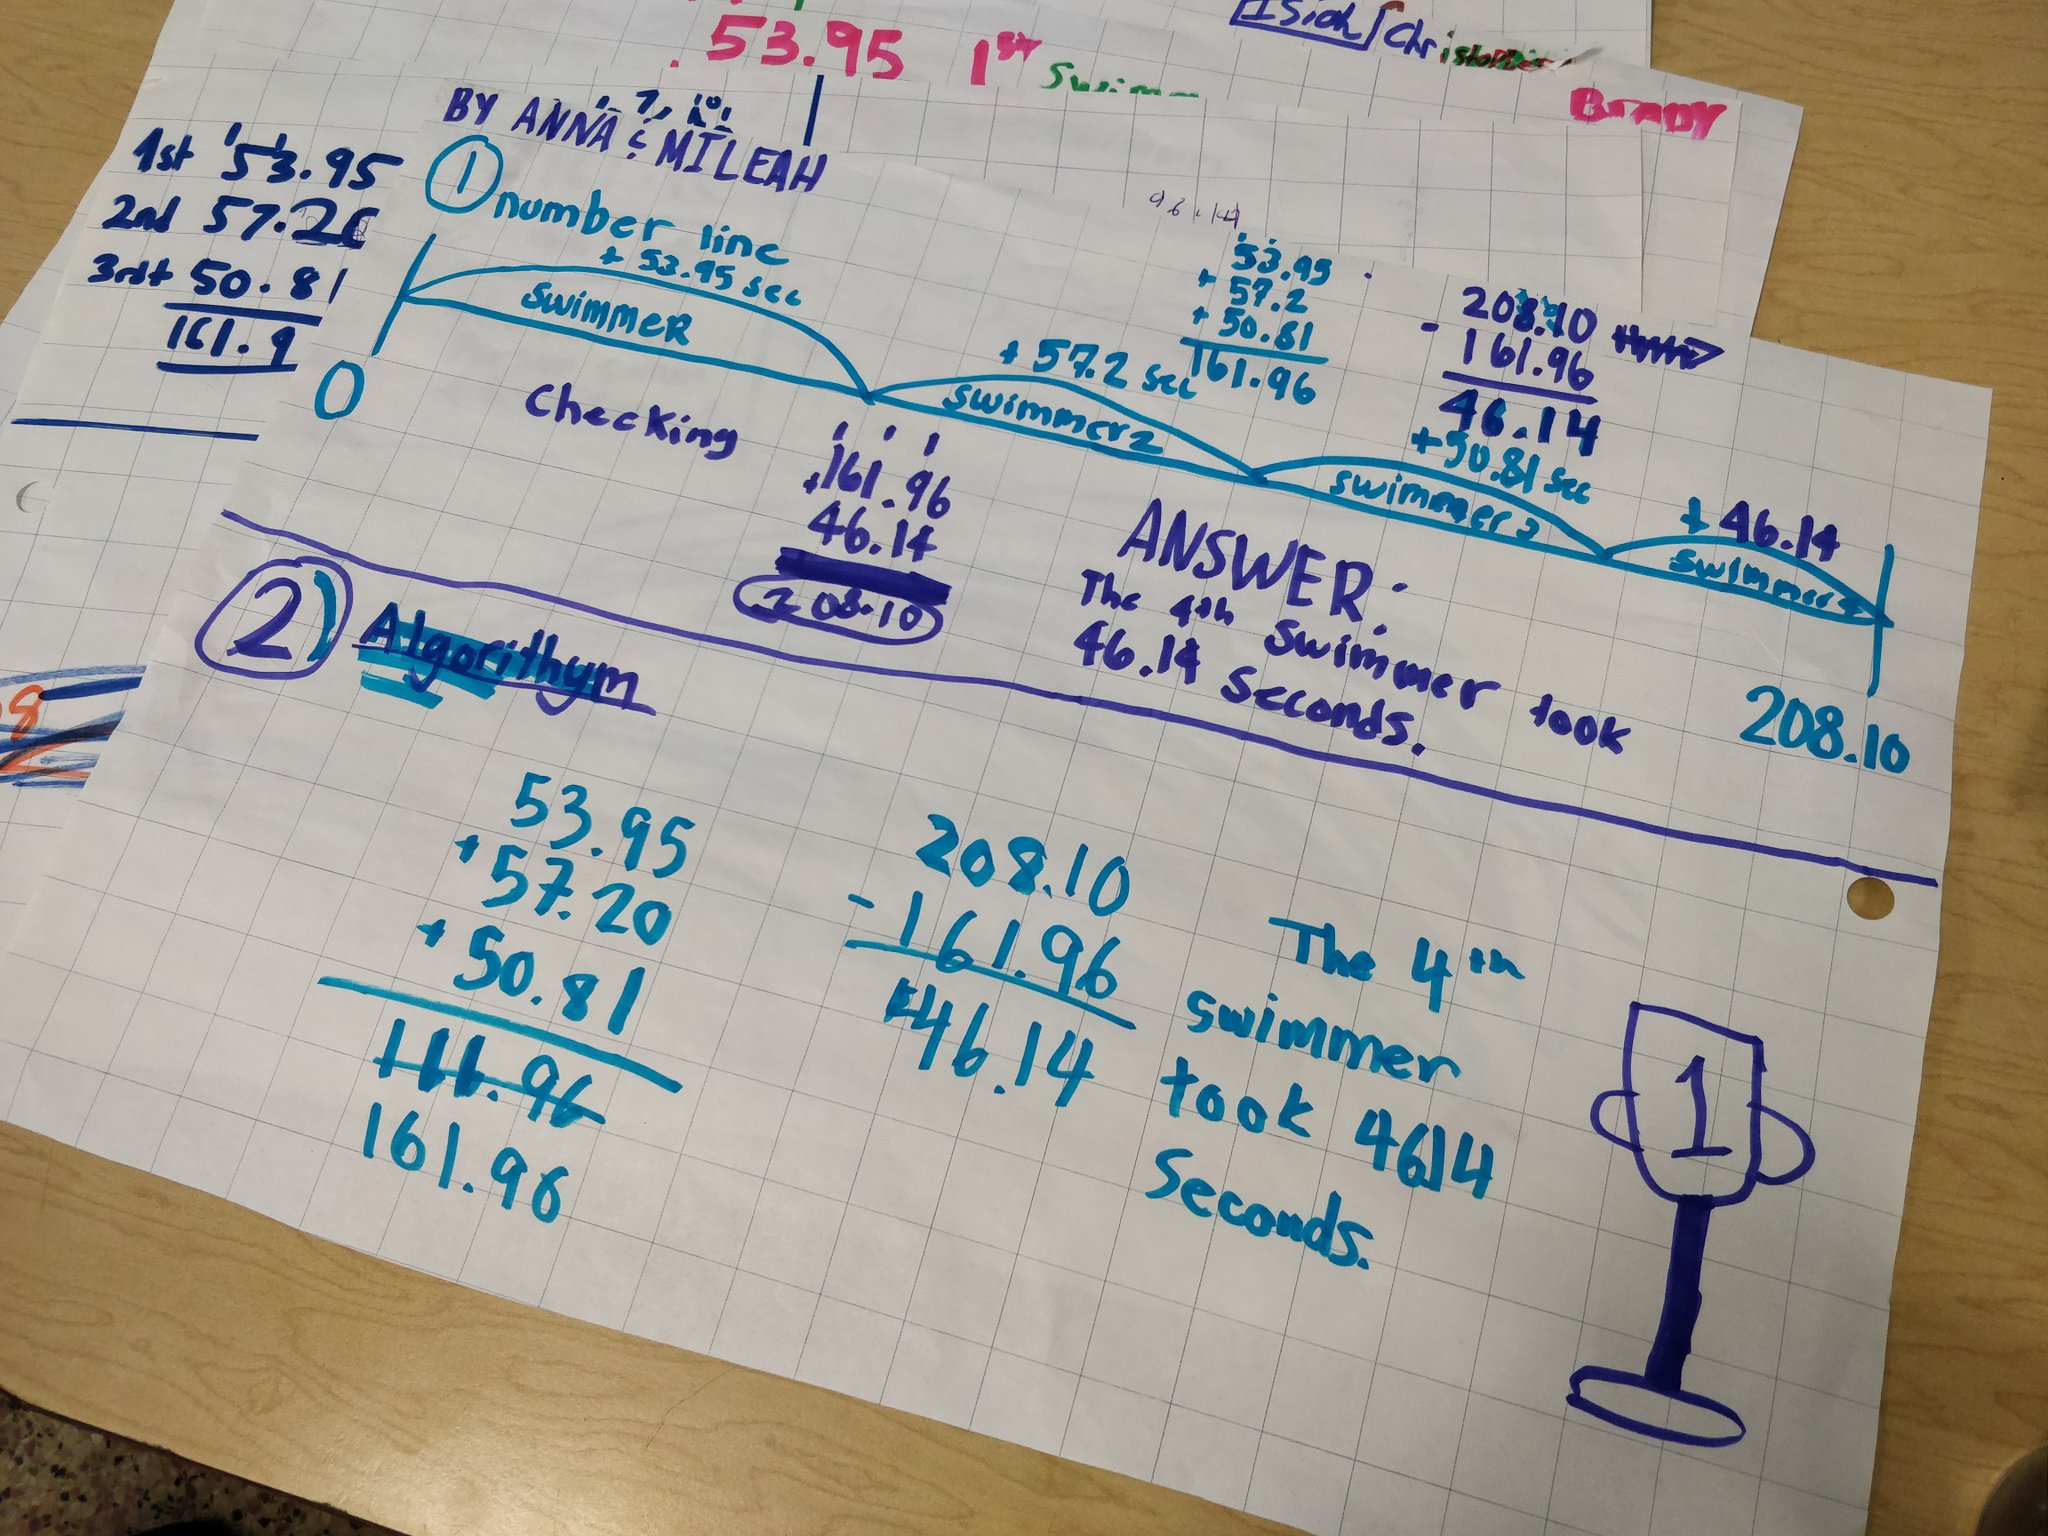 53.95 1st Swimm
Isiah Christopher
BRADY
1st 53.95
2nd 57.20
3rd+ 50.81
161.9
BY ANNA & MILEAH
1 number line
+ 53.95 sec
swimmeR
0
96.14
53.95
+ 57.2
+ 50.81
161.96
208.10
- 161.96
46.14
+57.2 sec
swimmer 2
+50.81 sec
swimmer 3
+ 46.14
swimmer 4
208.10
Checking
+161.96
46.14
208.10
ANSWER:
The 4th swimmer took
46.14 seconds.
2) Algorithym
53.95
+ 57.20
+ 50.81
161.96
208.10
- 161.96
46.14
The 4th
swimmer
took 46.14
seconds.
1
8